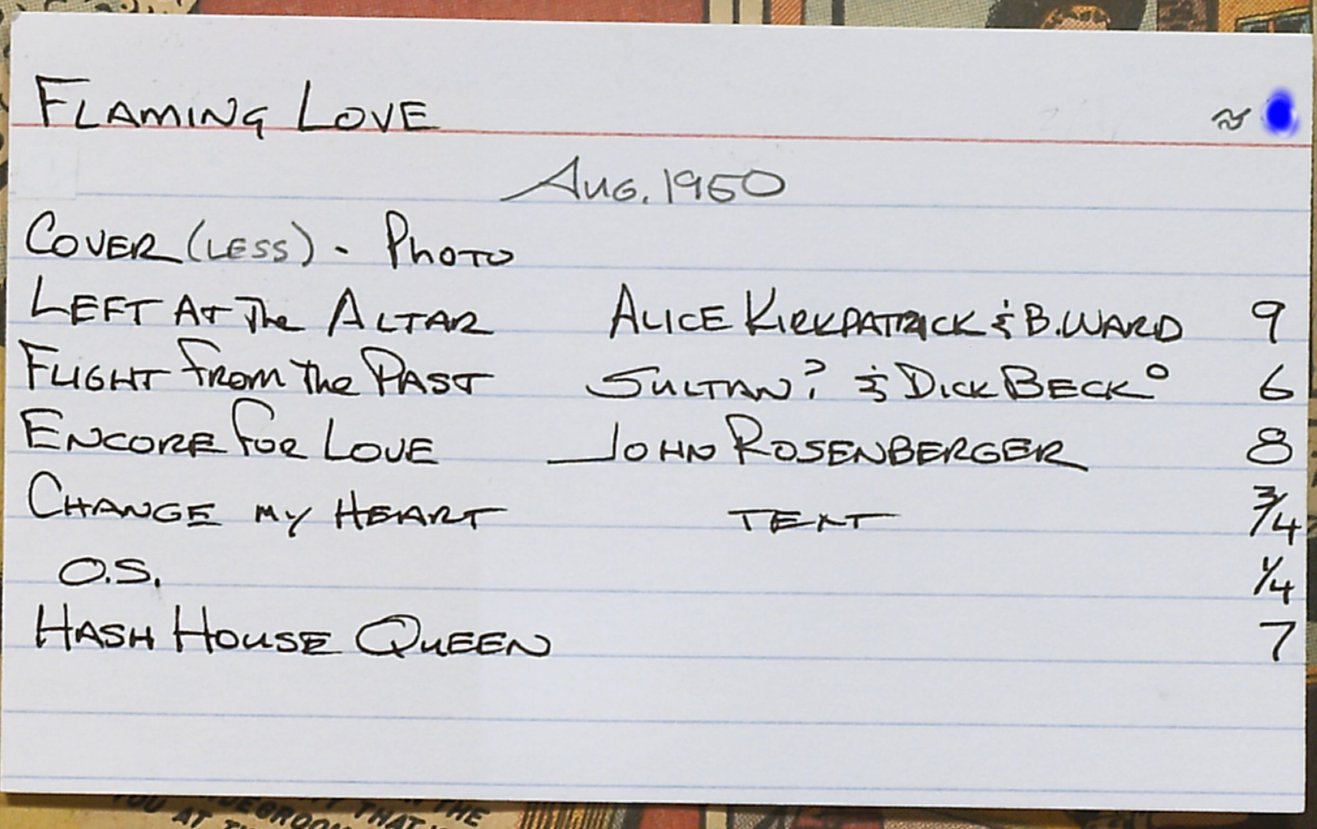 FLAMING LOVE ≈
AUG. 1950
COVER (LESS) - PHOTO
LEFT AT The ALTAR ALICE KIRKPATRICK & B. WARD 9
FLIGHT from The PAST SULTAN? & DICK BECK° 6
ENCORE for LOVE JOHN ROSENBERGER 8
CHANGE MY HEART TEXT 3/4
O.S. 1/4
HASH HOUSE QUEEN 7
THE
THAT
YOU AT